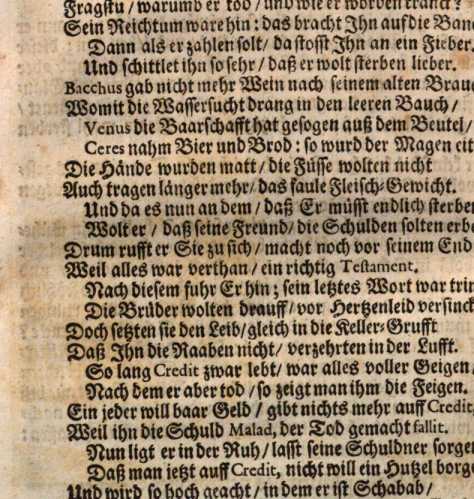 Fragstu / warumb er tod / und wie er worden kranck?
Sein Reichtum ware hin: das bracht Jhn auf die Banc
Dann als er zahlen solt / da stosst Jhn an ein Fieber.
Und schittlet ihn so sehr / daß er wolt sterben lieber.
Bacchus gab nicht mehr Wein nach seinem alten Brau
Womit die Wassersucht drang in den leeren Bauch /
Venus die Baarschafft hat gesogen auß dem Beutel /
Ceres nahm Bier und Brod: so wurd der Magen eit
Die Hände wurden matt / die Füsse wolten nicht
Auch tragen länger mehr / das faule Fleisch-Gewicht.
Und da es nun an dem / daß Er müsst endlich sterben
Wolt er / daß seine Freund / die Schulden solten erbe
Drum rufft er Sie zu sich / macht noch vor seinem End
Weil alles war verthan / ein richtig Testament.
Nach diesem fuhr Er hin; sein letztes Wort war trin
Die Brüder wolten drauff / vor Hertzenleid versinck
Doch setzten sie den Leib / gleich in die Keller-Grufft
Daß Jhn die Raaben nicht / verzehrten in der Lufft.
So lang Credit zwar lebt / war alles voller Geigen /
Nach dem er aber tod / so zeigt man ihm die Feigen.
Ein jeder will baar Geld / gibt nichts mehr auff Credit
Weil ihn die Schuld Malad, der Tod gemacht fallit.
Nun ligt er in der Ruh / lasst seine Schuldner sorgen
Daß man jetzt auff Credit, nicht will ein Hutzel borge
Und wird so hoch geacht / in dem er ist Schabab /